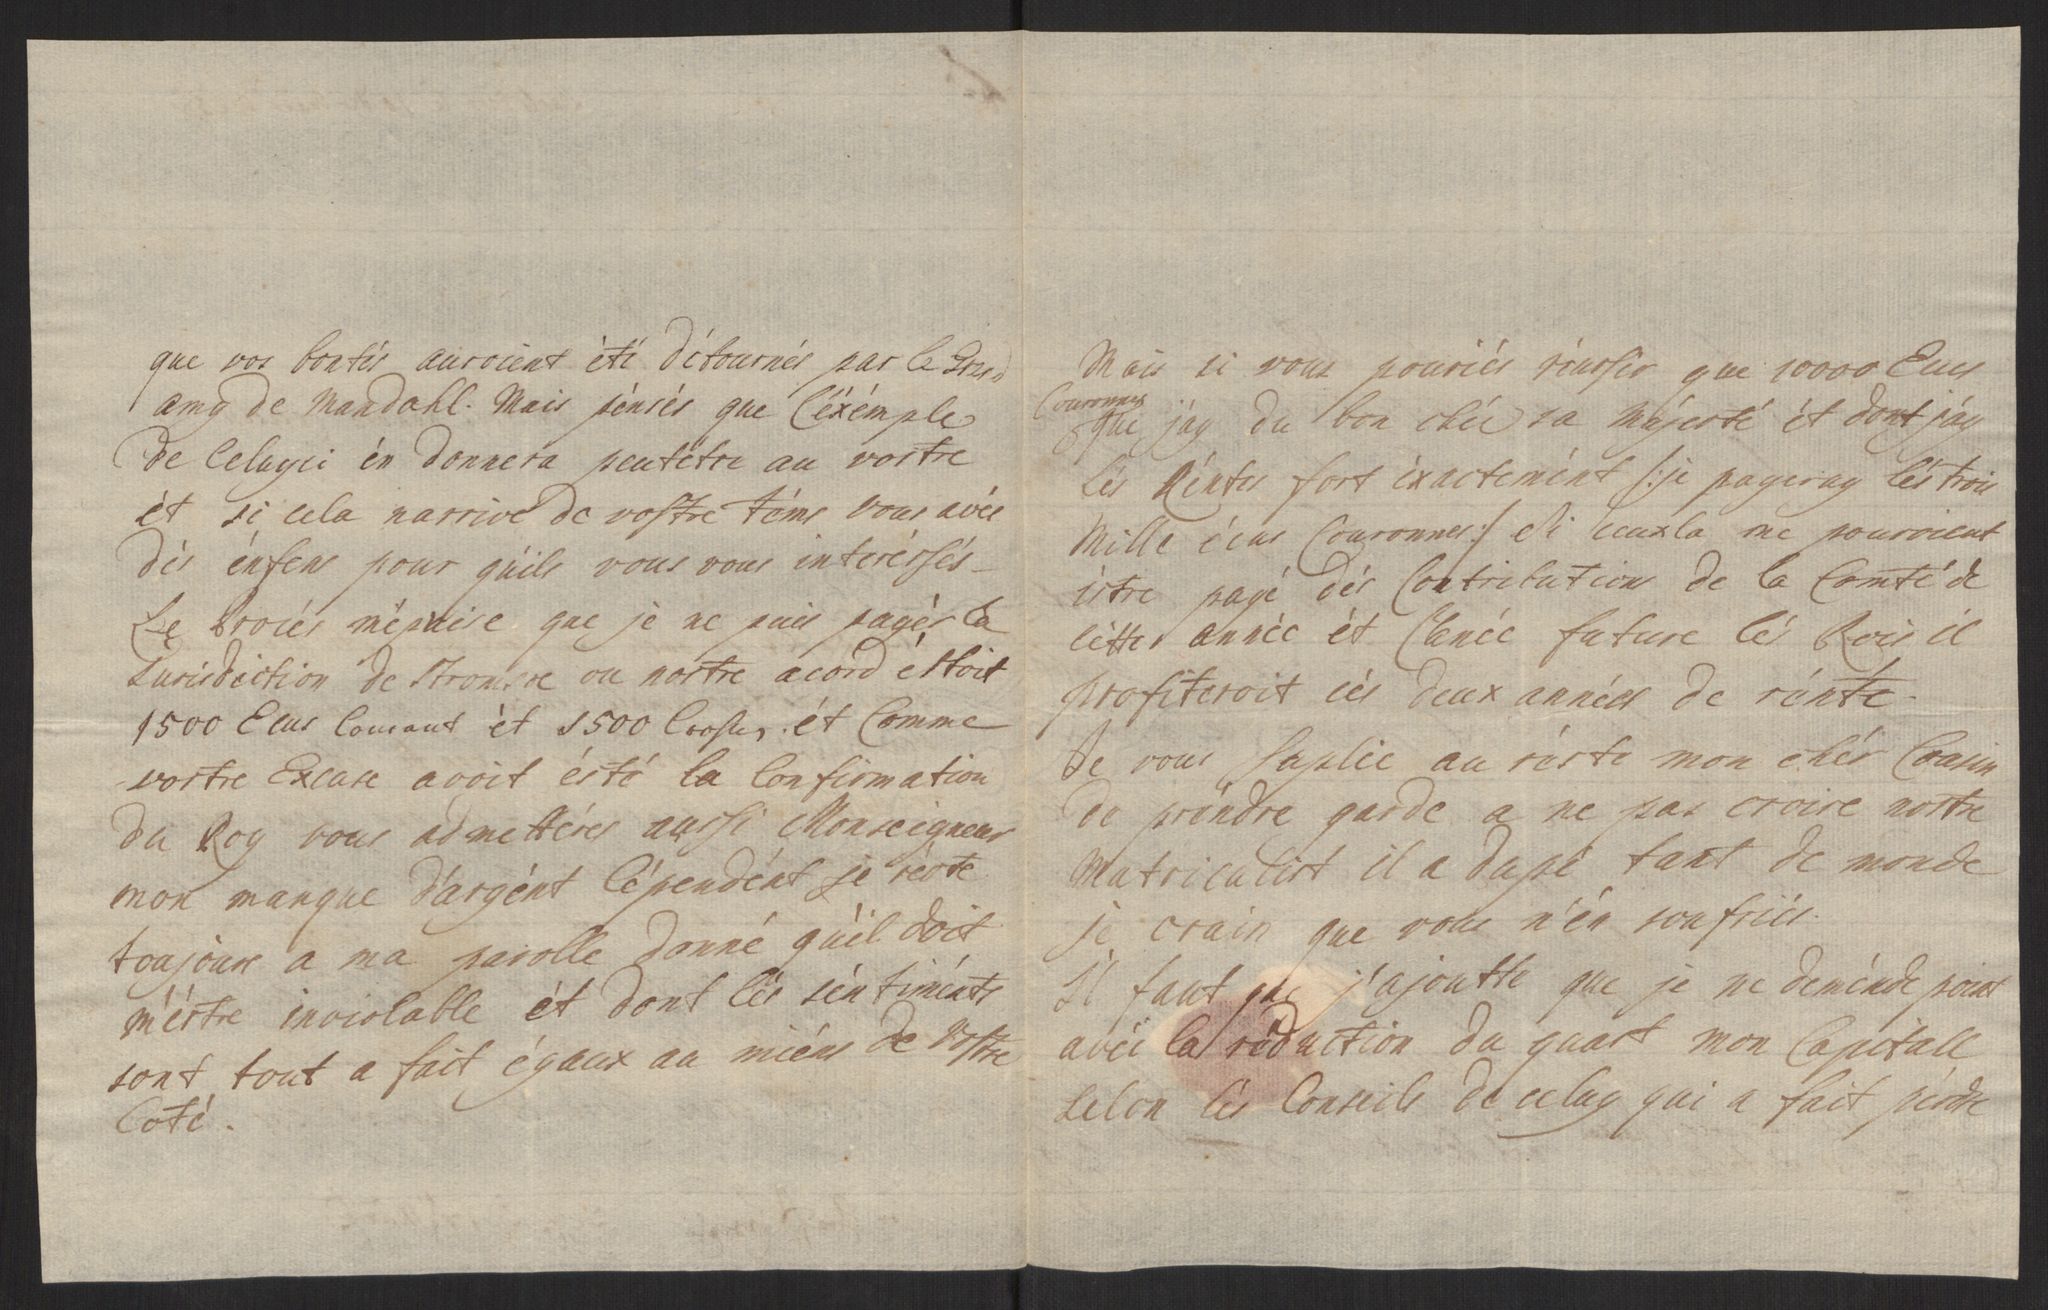 que vos bontés auroient été détournés par le
amy de Mandahl. Mais pénsés que l'éxémple
de Celuyci én donnera peutétre au vostre
ét si cela narrive de vostre téms vous avés
dés énfens pour qu'ils vous vous interéssés
Le méptise que je ne puis payér la
Jurisdiction de ou nostre acord éstoit
1500 Ecus Courant ét 1500 ét Comme
vostre Excuse avoit ésté la Confirmation
du Roy vous admettérés aussi Monseigneur
mon manque d'argént Cépendént je réste
toujours a ma parolle donné qu'il doit
m'éstre inviolable ét dont lés séntiménts
sont tout a fait égaux au miéns de vostre
Coté.
Mais si vous pouriés réussir que 10000 Ecus
Couronnes
que j'ay du bon chéz sa Majesté ét dont j'ay
lés Réntes fort éxactemént /: je payeray lés trois
Mille écus Couronnes :/ Si ceuxla me pouroient
éstre payé dés Contributions de la Comté de
cétte année ét l'anée future lés Rois il
profiteroit cés deux années de rénte.
Je vous suplie au réste mon chér Cousin
de préndre garde a ne pas croire nostre
Matriculist il a dupé tant de monde
je crain que vous n'én soufriés.
Il faut que j'ajoutte que je ne deménde point
avéc la réduction du quart mon Capitall
selon lés Conseils de celuy qui a fait pérdre